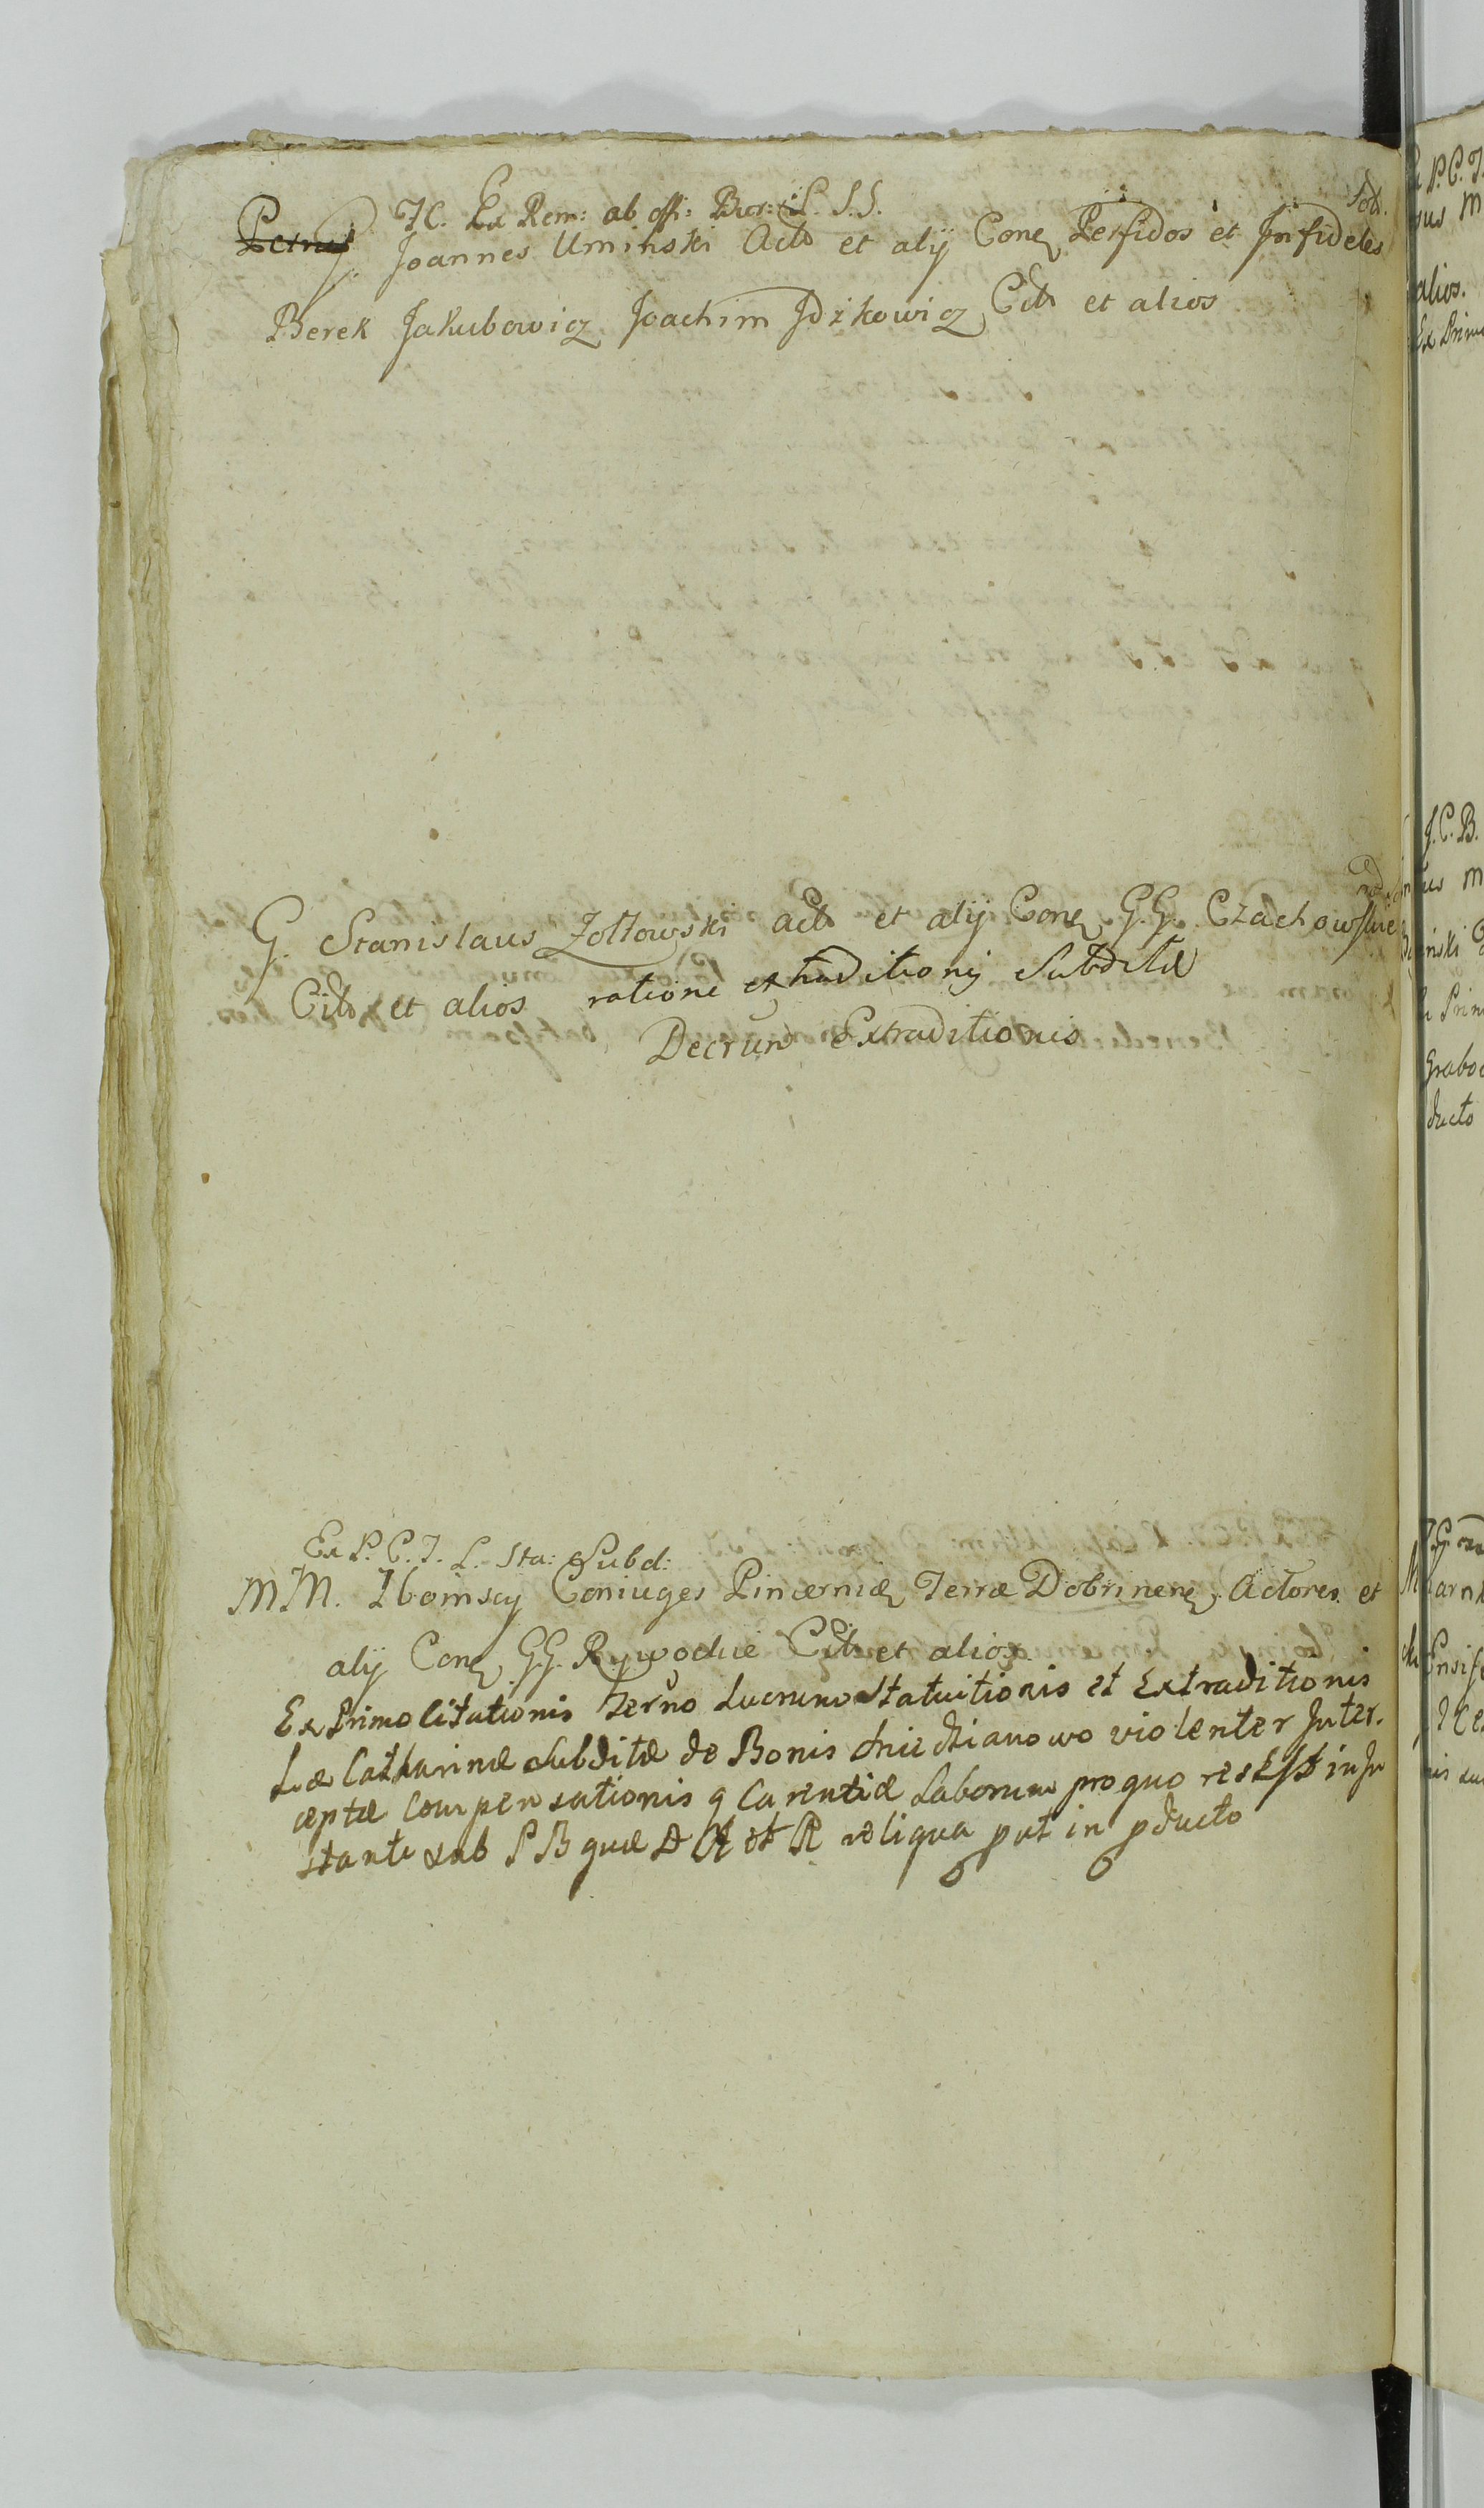 JC. Ex Rem: ab offi: Bur: L. S. S.
Petrus Joannes Uminski Act et alij Cone Perfidos et Infideles
Berek Jakubowicz Joachim Jdzkowicz Cit et alios
G. Stanislaus Zołtowski act et alij Cone G.G. Czachowskie
Cit et alios ratione extraditionis Subditæ
Decrum Extraditionis
Ex P. C. T. L. Sta: Subd:
MM. Zboinscy Coniuges Pincernidæ Terræ Dobrinene Actores et
alij Cone G.G. Rywockie Cit et alios.
Ex Primo Citationis Termo Lucrum Statuitionis et Extraditionis
Læ Catharinæ Subditæ de Bonis violenter Inter-
ceptæ Compensationis q Carentiæ Laborum pro quo res est in In
stanti sub P B quæ A et R reliqua put in pducto